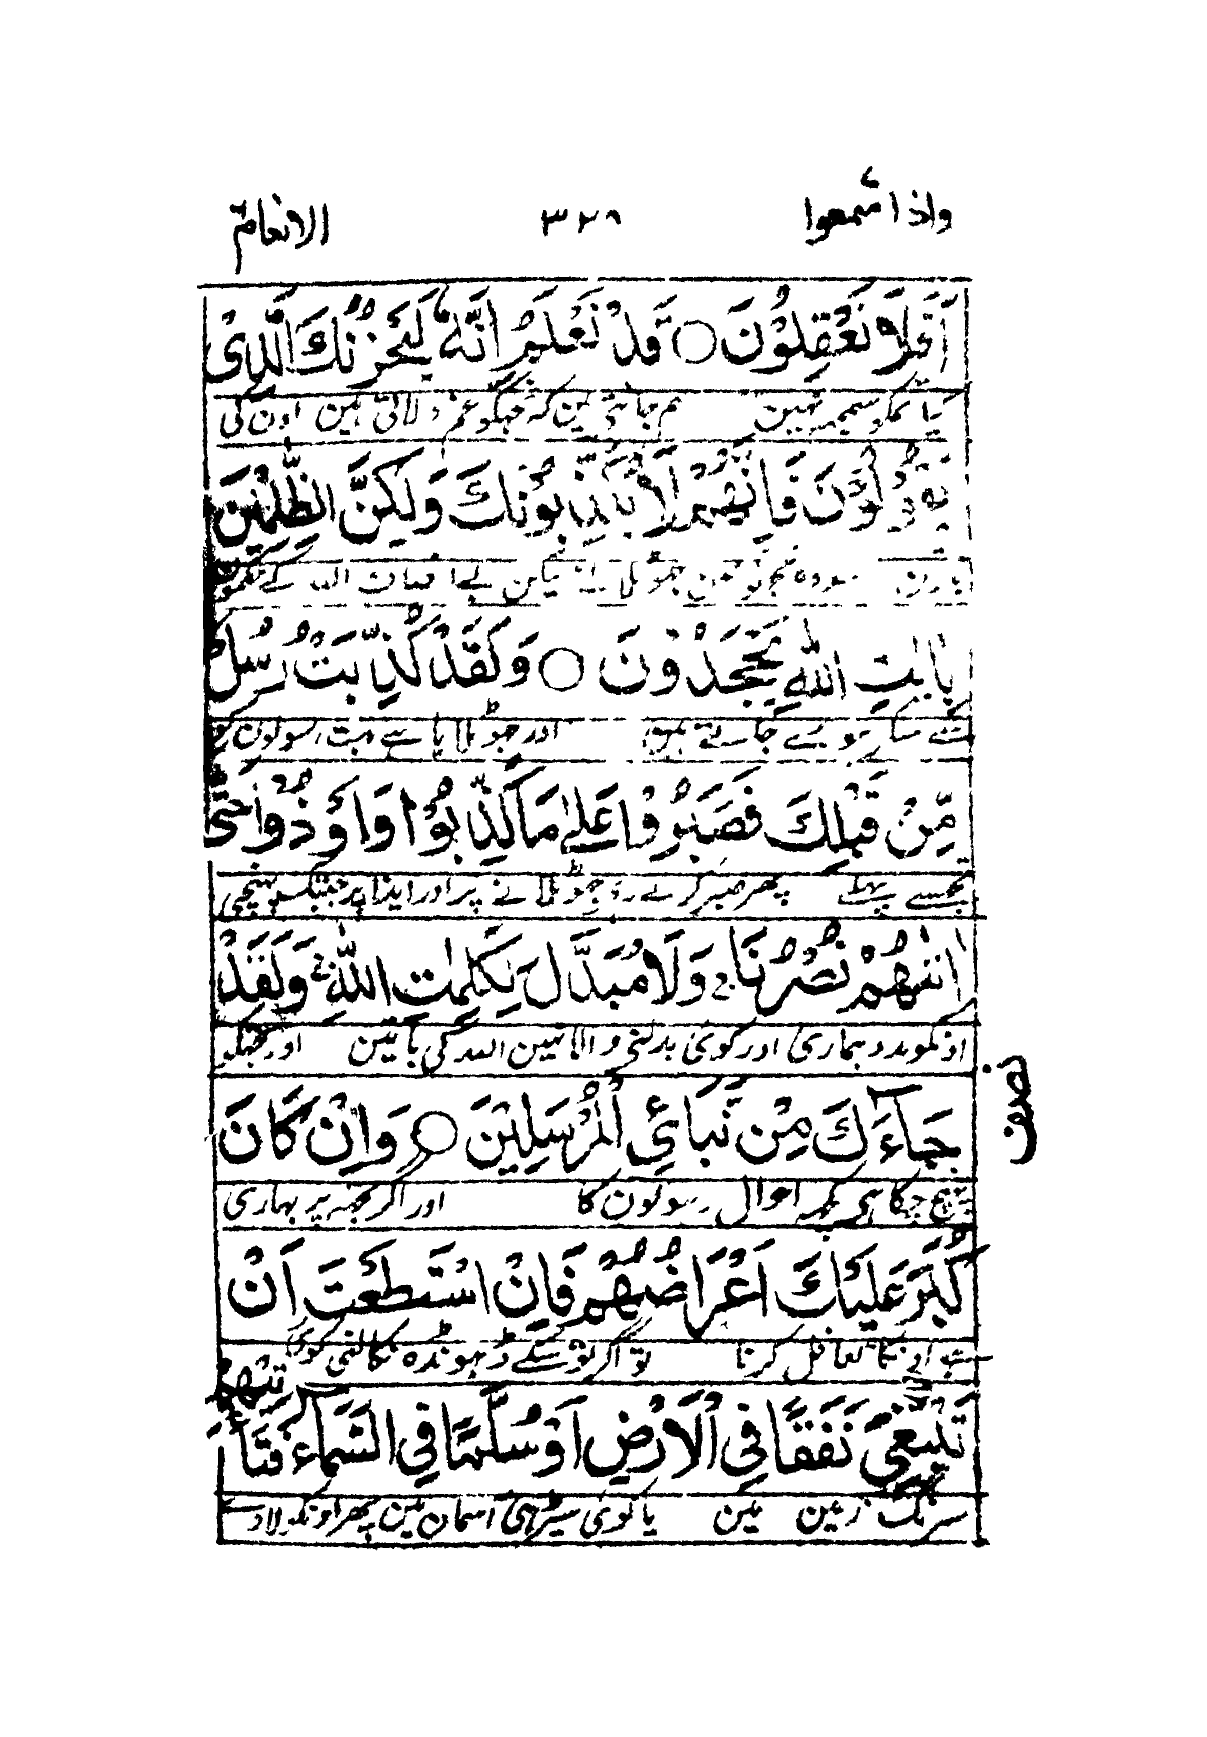 واذا سمعوا ۳۲۸ الانعام
اَفَلَا تَعْقِلُوْنَ ○ قَدْ نَعْلَمُ اِنَّهٗ لَيَحْزُنُكَ الَّذِیْ
کیا تمکو سمجہ نہین ہم جانتی ہین کہ تجہکو غم دلاتی ہین اون کی
يَقُوْلُوْنَ فَاِنَّهُمْ لَا يُكَذِّبُوْنَكَ وَلٰكِنَّ الظّٰلِمِيْنَ
باتین سو وہ تجہکو نہین جہوٹلاتے لیکن بے انصاف اللہ کے
بِاٰيٰتِ اللّٰهِ يَجْحَدُوْنَ ○ وَلَقَدْ كُذِّبَتْ رُسُلٌ
سے جاتے ہین اور جہوٹلایا ہے بہت رسولون کو
مِّنْ قَبْلِكَ فَصَبَرُوْا عَلٰی مَا كُذِّبُوْا وَاُوْذُوْا حَتّٰی
تجہسے پہلے پھر صبر کرتے رہے جہوٹلانے پر اور ایذا پر جبتک پہنچی
اَتٰىهُمْ نَصْرُنَا ۚ وَلَا مُبَدِّلَ لِكَلِمٰتِ اللّٰهِ ۚ وَلَقَدْ
اونکو مدد ہماری اور کوئی بدلنی والا نہین اللہ کی باتین اور تجہکو
جَآءَكَ مِنْ نَّبَاِئِ الْمُرْسَلِيْنَ ○ وَاِنْ كَانَ
نصف
پہنچ چکا ہی کچہہ احوال رسولون کا اور اگر تجہہ پر بہاری
كَبُرَ عَلَيْكَ اِعْرَاضُهُمْ فَاِنِ اسْتَطَعْتَ اَنْ
ہے اونکا تغافل کرنا تو اگر تو سکے ڈہونڈہ نکالنی کوئی
تَبْتَغِیَ نَفَقًا فِی الْاَرْضِ اَوْ سُلَّمًا فِی السَّمَآءِ فَتَاْتِيَهُمْ
سرنگ زمین مین یا کوئی سیڑہی اسمان مین پھر اونکو لادے